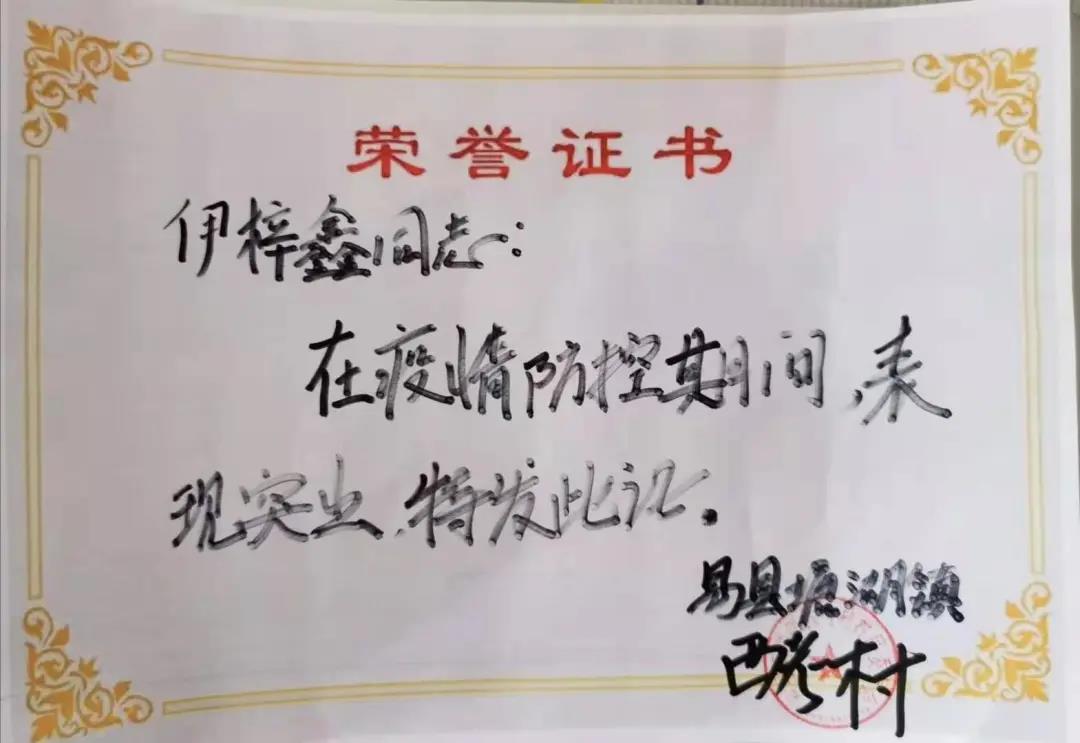 荣誉证书
伊梓鑫同志:
在疫情防控期间,表
现突出,特发此证.
易县塘湖镇
西村